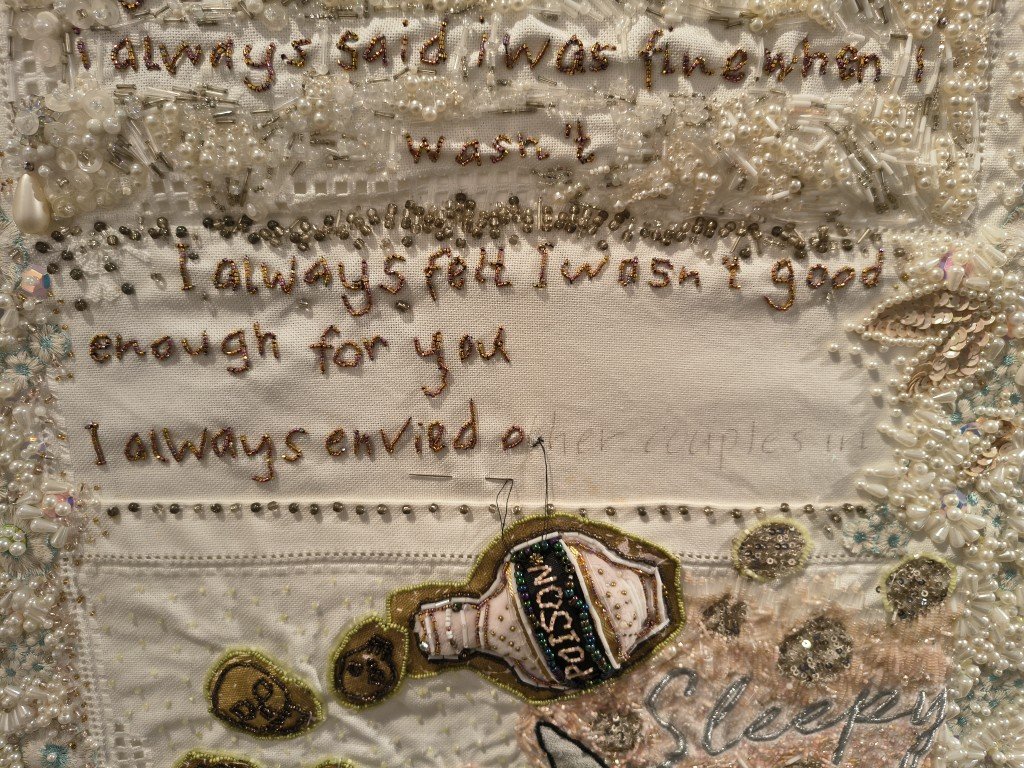 I always said I was fine when I
wasn't
I always felt I wasn't good
enough for you
I always envied other couples in
POISON
Sleepy